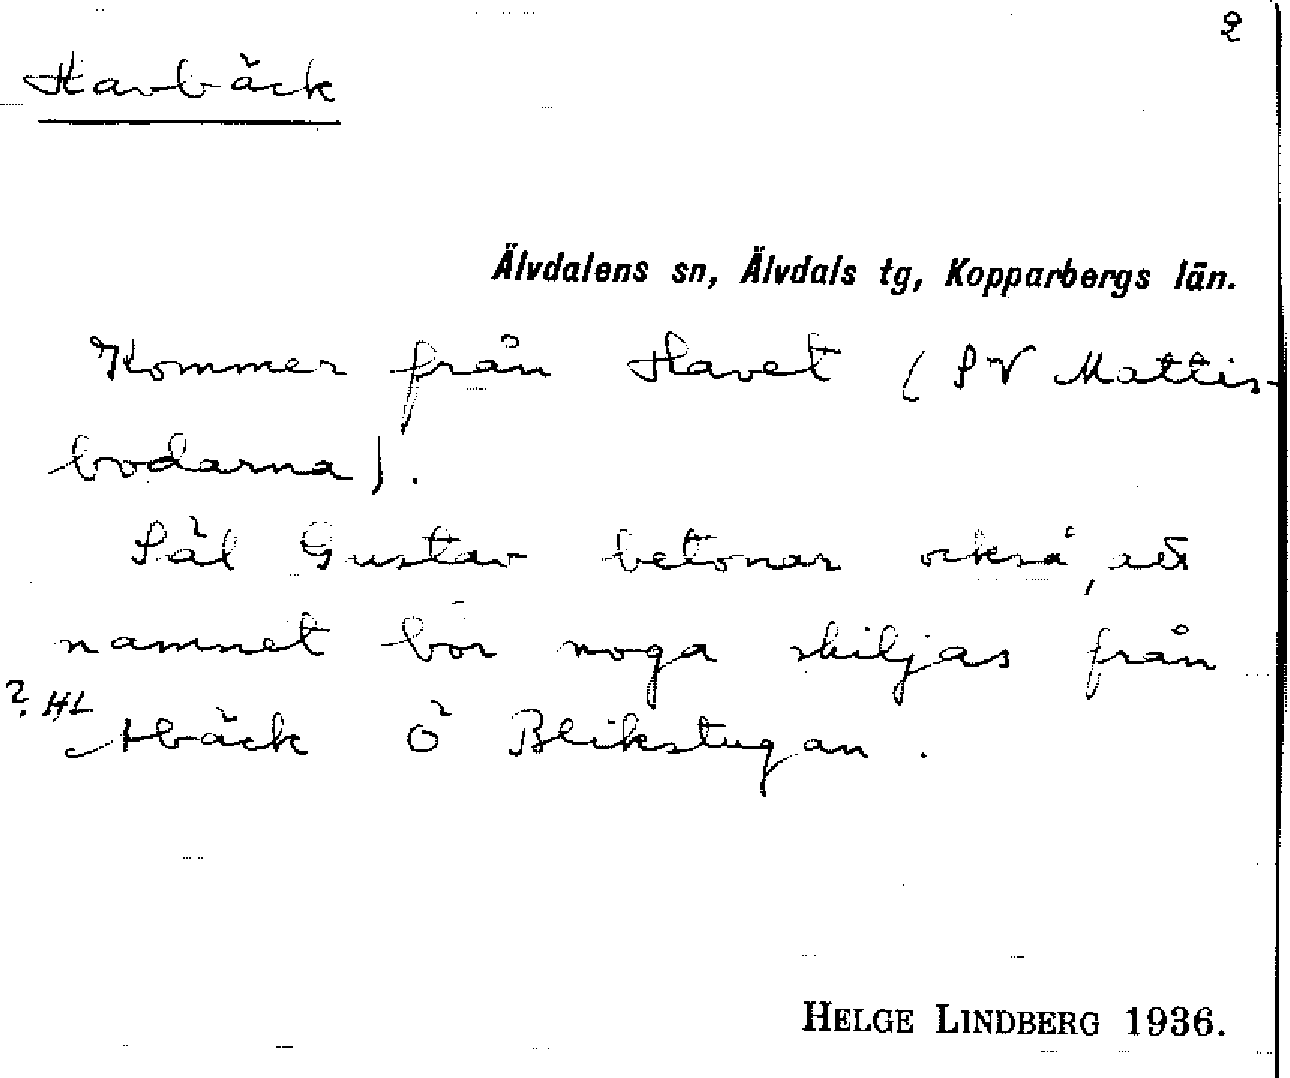 2
Havbäck
Älvdalens sn, Älvdals tg, Kopparbergs län.
Kommer från Havet (SV Mattis-
bodarna).
Säl Gustav betonar också, att
namnet bör noga skiljas från
? HL
Abäck Ö Blikstugan.
HELGE LINDBERG 1936.